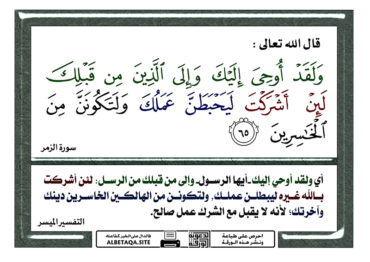 قال الله تعالى :
وَلَقَدْ أُوحِىَ إِلَيْكَ وَإِلَى ٱلَّذِينَ مِن قَبْلِكَ
لَئِنْ أَشْرَكْتَ لَيَحْبَطَنَّ عَمَلُكَ وَلَتَكُونَنَّ مِنَ
ٱلْخَاسِرِينَ ٦٥
سورة الزمر
أي ولقد أوحي إليك ـ أيها الرسول ـ وإلى من قبلك من الرسل: لئن أشركت
بـالله غـيـره ليبطلـن عملـك، ولتكونـن من الهالكـين الخاسـرين دينك
وآخرتك؛ لأنه لا يقبل مع الشرك عمل صالح.
التفسير الميسر
ALBETAQA.SITE
احرص على طباعة
ونشر هذه الورقة